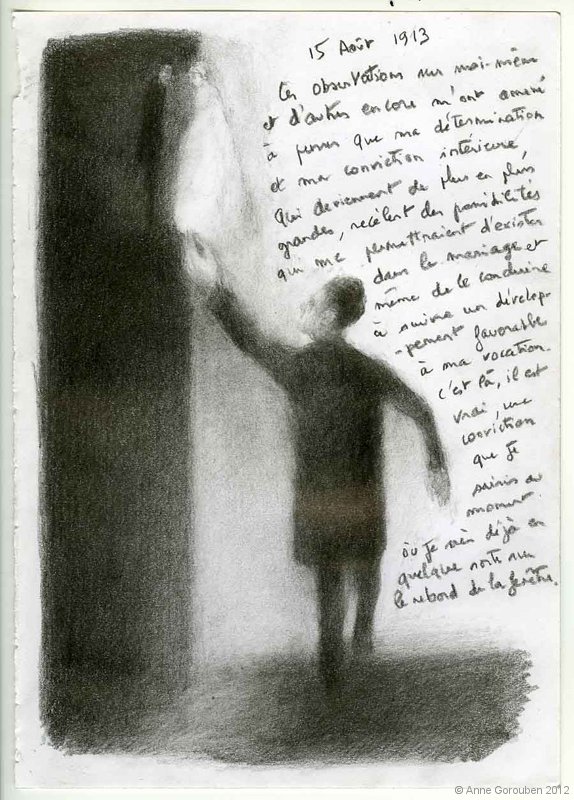 15 Août 1913
Ces observations sur moi-même
et d'autres encore m'ont amené
à penser que ma détermination
et ma conviction intérieure,
qui deviennent de plus en plus
grandes, recèlent des possibilités
qui me permettraient d'exister
dans le mariage et
même de le conduire
à suivre un dévelop-
-pement favorable
à ma vocation.
c'est là, il est
vrai, une
conviction
que je
saisis au
moment
où je suis déjà en
quelque sorte sur
le rebord de la fenêtre.
© Anne Gorouben 2012